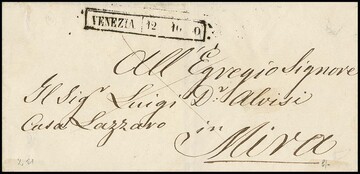 VENEZIA 12
All'Egregio Signore
Il Sigr Luigi Dr Aloisi
Casa Lazzaro in
Mira